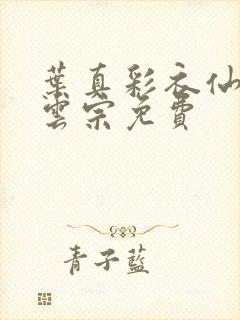 葉真彩衣仙
雲宗免費
青子藍